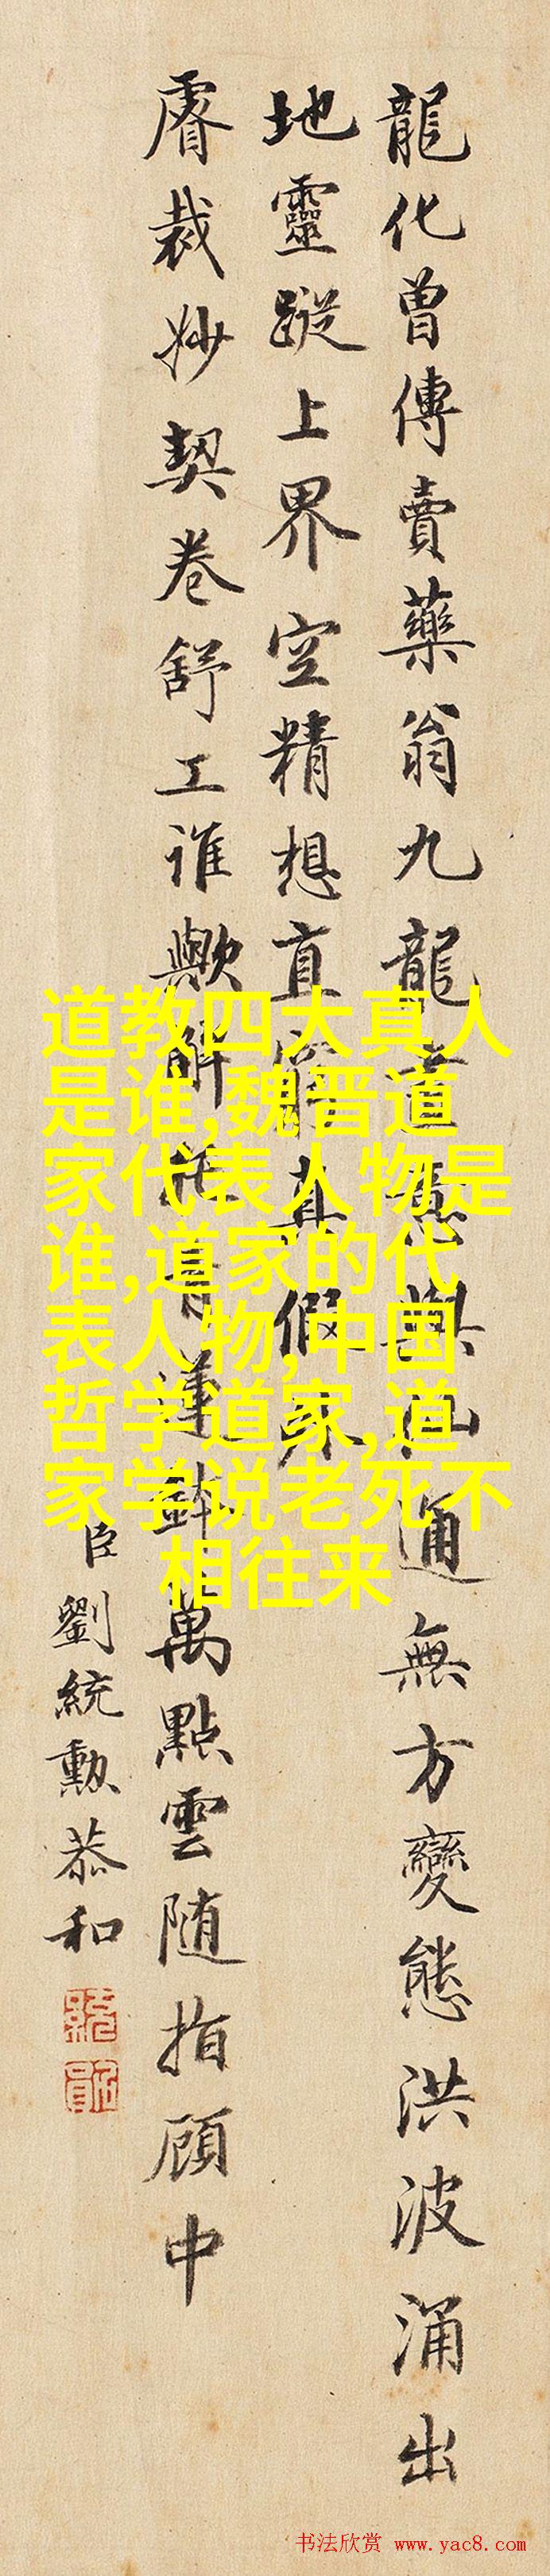 龍化曾傳賣藥翁九龍意與仙通無方變態洪波涌出
地靈蹤上界空精想直真假外
睿裁妙契卷舒工誰歟解青蓮鉢萬點雲随指顧中
臣劉統勳恭和
道教四大真人
是谁,魏晋道
家代表人物是
谁,道家的代
表人物,中国
哲学道家,道
家学说老死不
相往来
书法欣赏 www.yac8.com